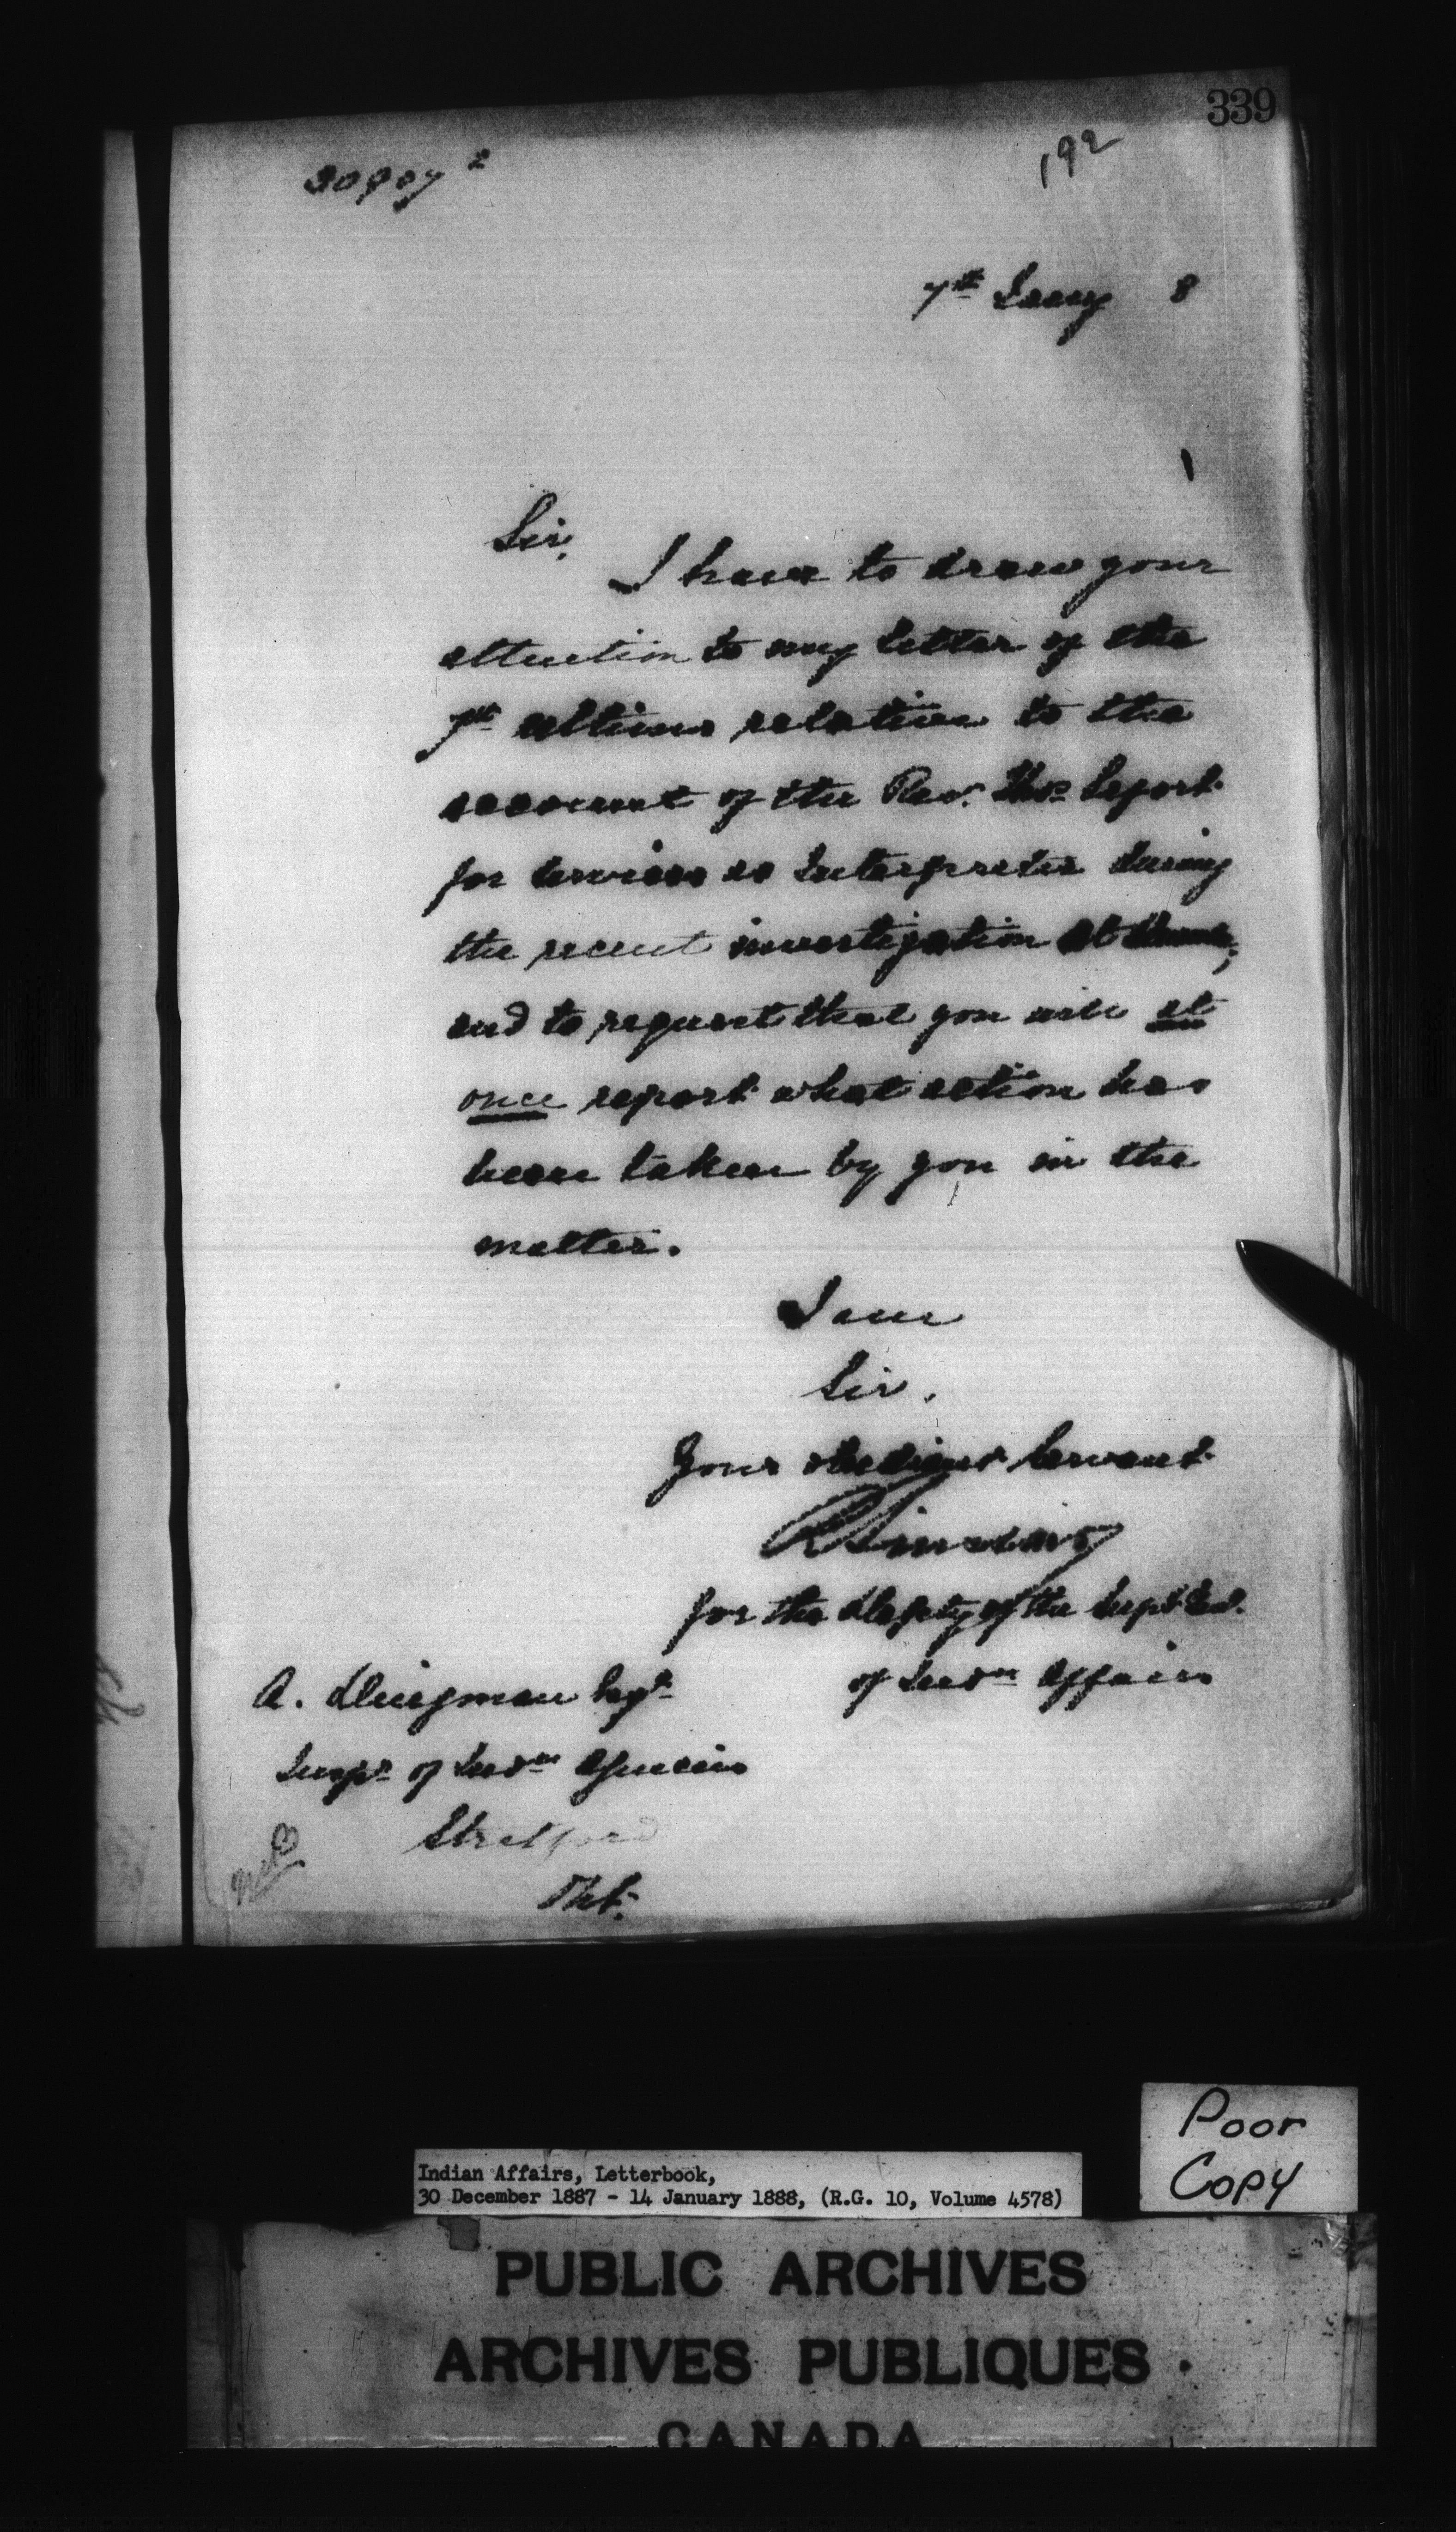 339
192
7th Jany 8
Sir,
I have to draw your
attention to my letter of the
7th ultimo relative to the
account of the Rev. Thos
for services as Interpreter during
the recent investigation at
and to request that you will at
once report what action has
been taken by you in the
matter.
I am
Sir,
Your obedient Servant
R Sinclair
for the Deputy of the Supt Gen.
of Indn Affairs
A. Dingman Esqr
Inspr of Indn Agencies
Stratford
Ont.
Poor
Copy
Indian Affairs, Letterbook,
30 December 1887 - 14 January 1888, (R.G. 10, Volume 4578)
PUBLIC ARCHIVES
ARCHIVES PUBLIQUES
CANADA